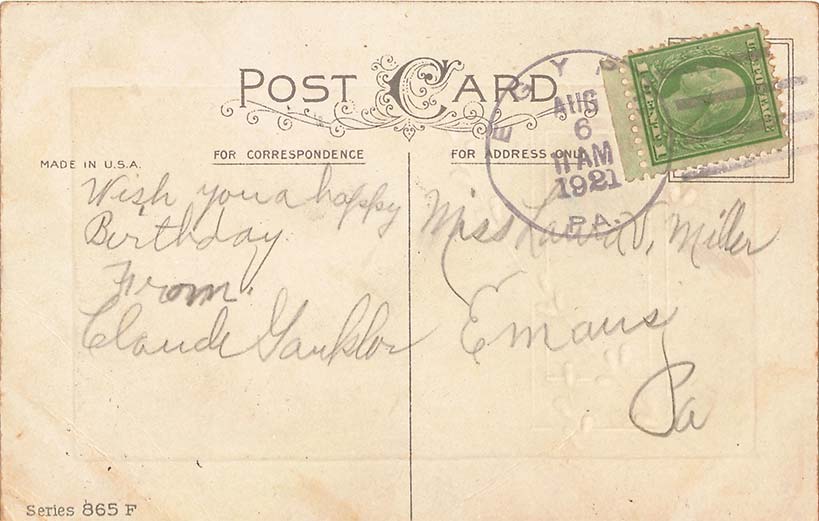 POST CARD
MADE IN U.S.A.
FOR CORRESPONDENCE
FOR ADDRESS ONLY
EGYPT
AUG
6
11 AM
1921
PA.
U.S. POSTAGE
1 CENT 1
Wish you a happy
Birthday
From
Claude
Miss Laura V. Miller
Emaus
Pa
Series 865 F